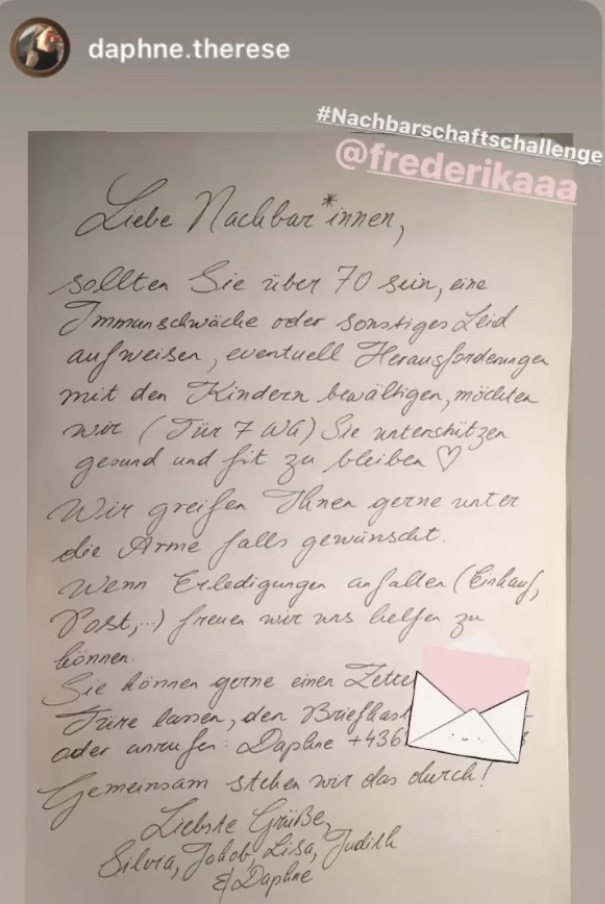 daphne.therese
#Nachbarschaftschallenge
@frederikaaa
Liebe Nachbar*innen,
sollten Sie über 70 sein, eine
Immunschwäche oder sonstiges Leid
aufweisen, eventuell Herausforderungen
mit den Kindern bewältigen, möchten
wir (Tür 7 WG) Sie unterstützen
gesund und fit zu bleiben ♡
Wir greifen Ihnen gerne unter
die Arme falls gewünscht.
Wenn Erledigungen anfallen (Einkauf,
Post,..) freuen wir uns helfen zu
können.
Sie können gerne einen Zette
Türe lassen, den Briefkast
oder anrufen: Daphne +436
Gemeinsam stehen wir das durch!
Liebste Grüße,
Silvia, Jakob, Lisa, Judith
& Daphne